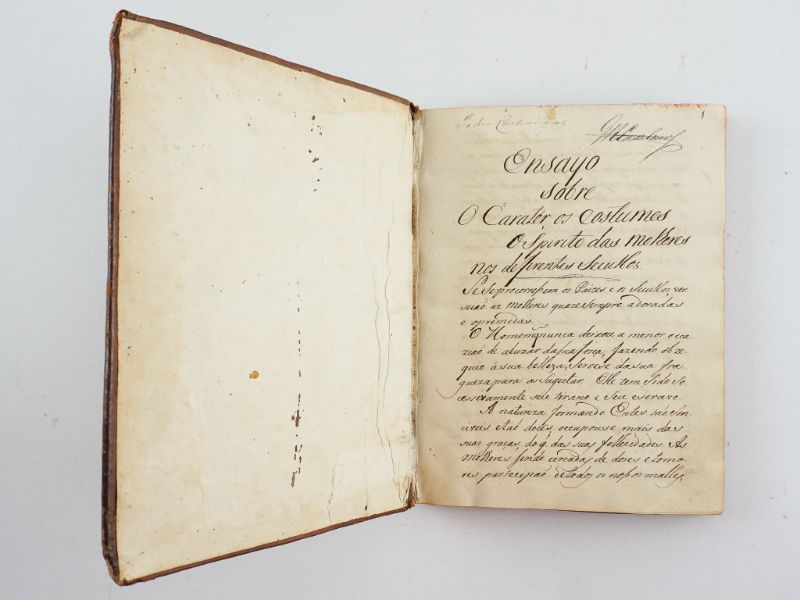 1
Ensayo
sobre
O Carater os costumes
O Spirito das molheres
nos defirentes Seculhos
Se Seprocorrem os Paizes e os Seculhos, ver
seião as molheres quaze sempre adoradas
e oprimidas.
O Homem nunca deixou a menor oca
zião de abuzar dasua força, fazendo ob ze
quio à sua belleza, servese da sua fra
queza para a sugeitar. Elle tem sido So
cessivamente seu tirano e Seu escravo.
A natureza formando Entes tão sen
civeis e taõ doces, occupouse mais das
suas graças, do q̃ das suas fellecidades. As
molheres sendo cercadas de dores e temo
res partecipaõ detodos os nossos malles,